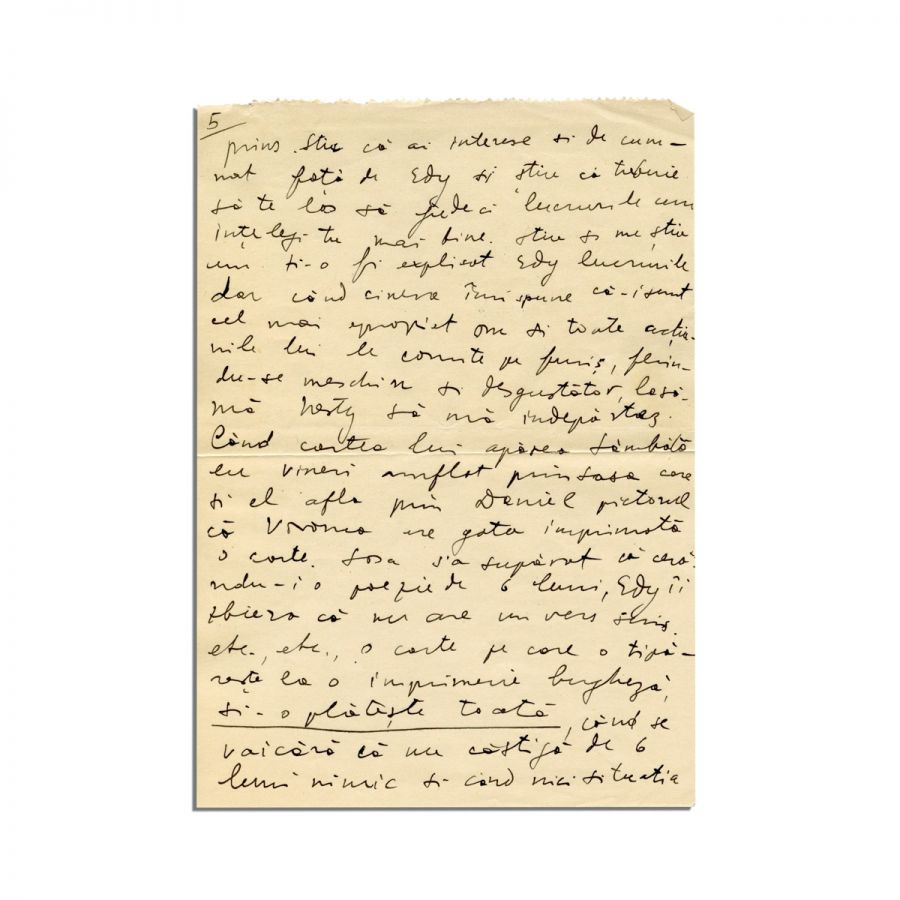 5
prins. Stiu că ai interese si de cum-
nat fată de Edy si știu că trebuie
să te las să judeci lucrurile cum
ințelegi tu mai bine. Stiu si nu știu
cum ti-o fi explicat Edy lucrurile
dar când cineva îmi spune că-i sunt
cel mai apropiat om si toate acțiu-
nile lui le comite pe furiș, ferin-
du-se meschin si desgustător, lasă-
mă să mă indepărtez.
Când cartea lui apărea Sâmbătă
eu vineri am aflat prin Sasa care
si el afla prin Daniel pictorul
că are gata imprimată
o carte. Sasa s'a supărat că cerâ-
ndu-i o poezie de 6 luni, Edy îi
sbiera că nu are un vers scris,
etc., etc., o carte pe care o tipă-
rește la o imprimerie burgheză,
si-o plătește toată, când se
vaicără că nu câstigă de 6
luni nimic si când nici situatia